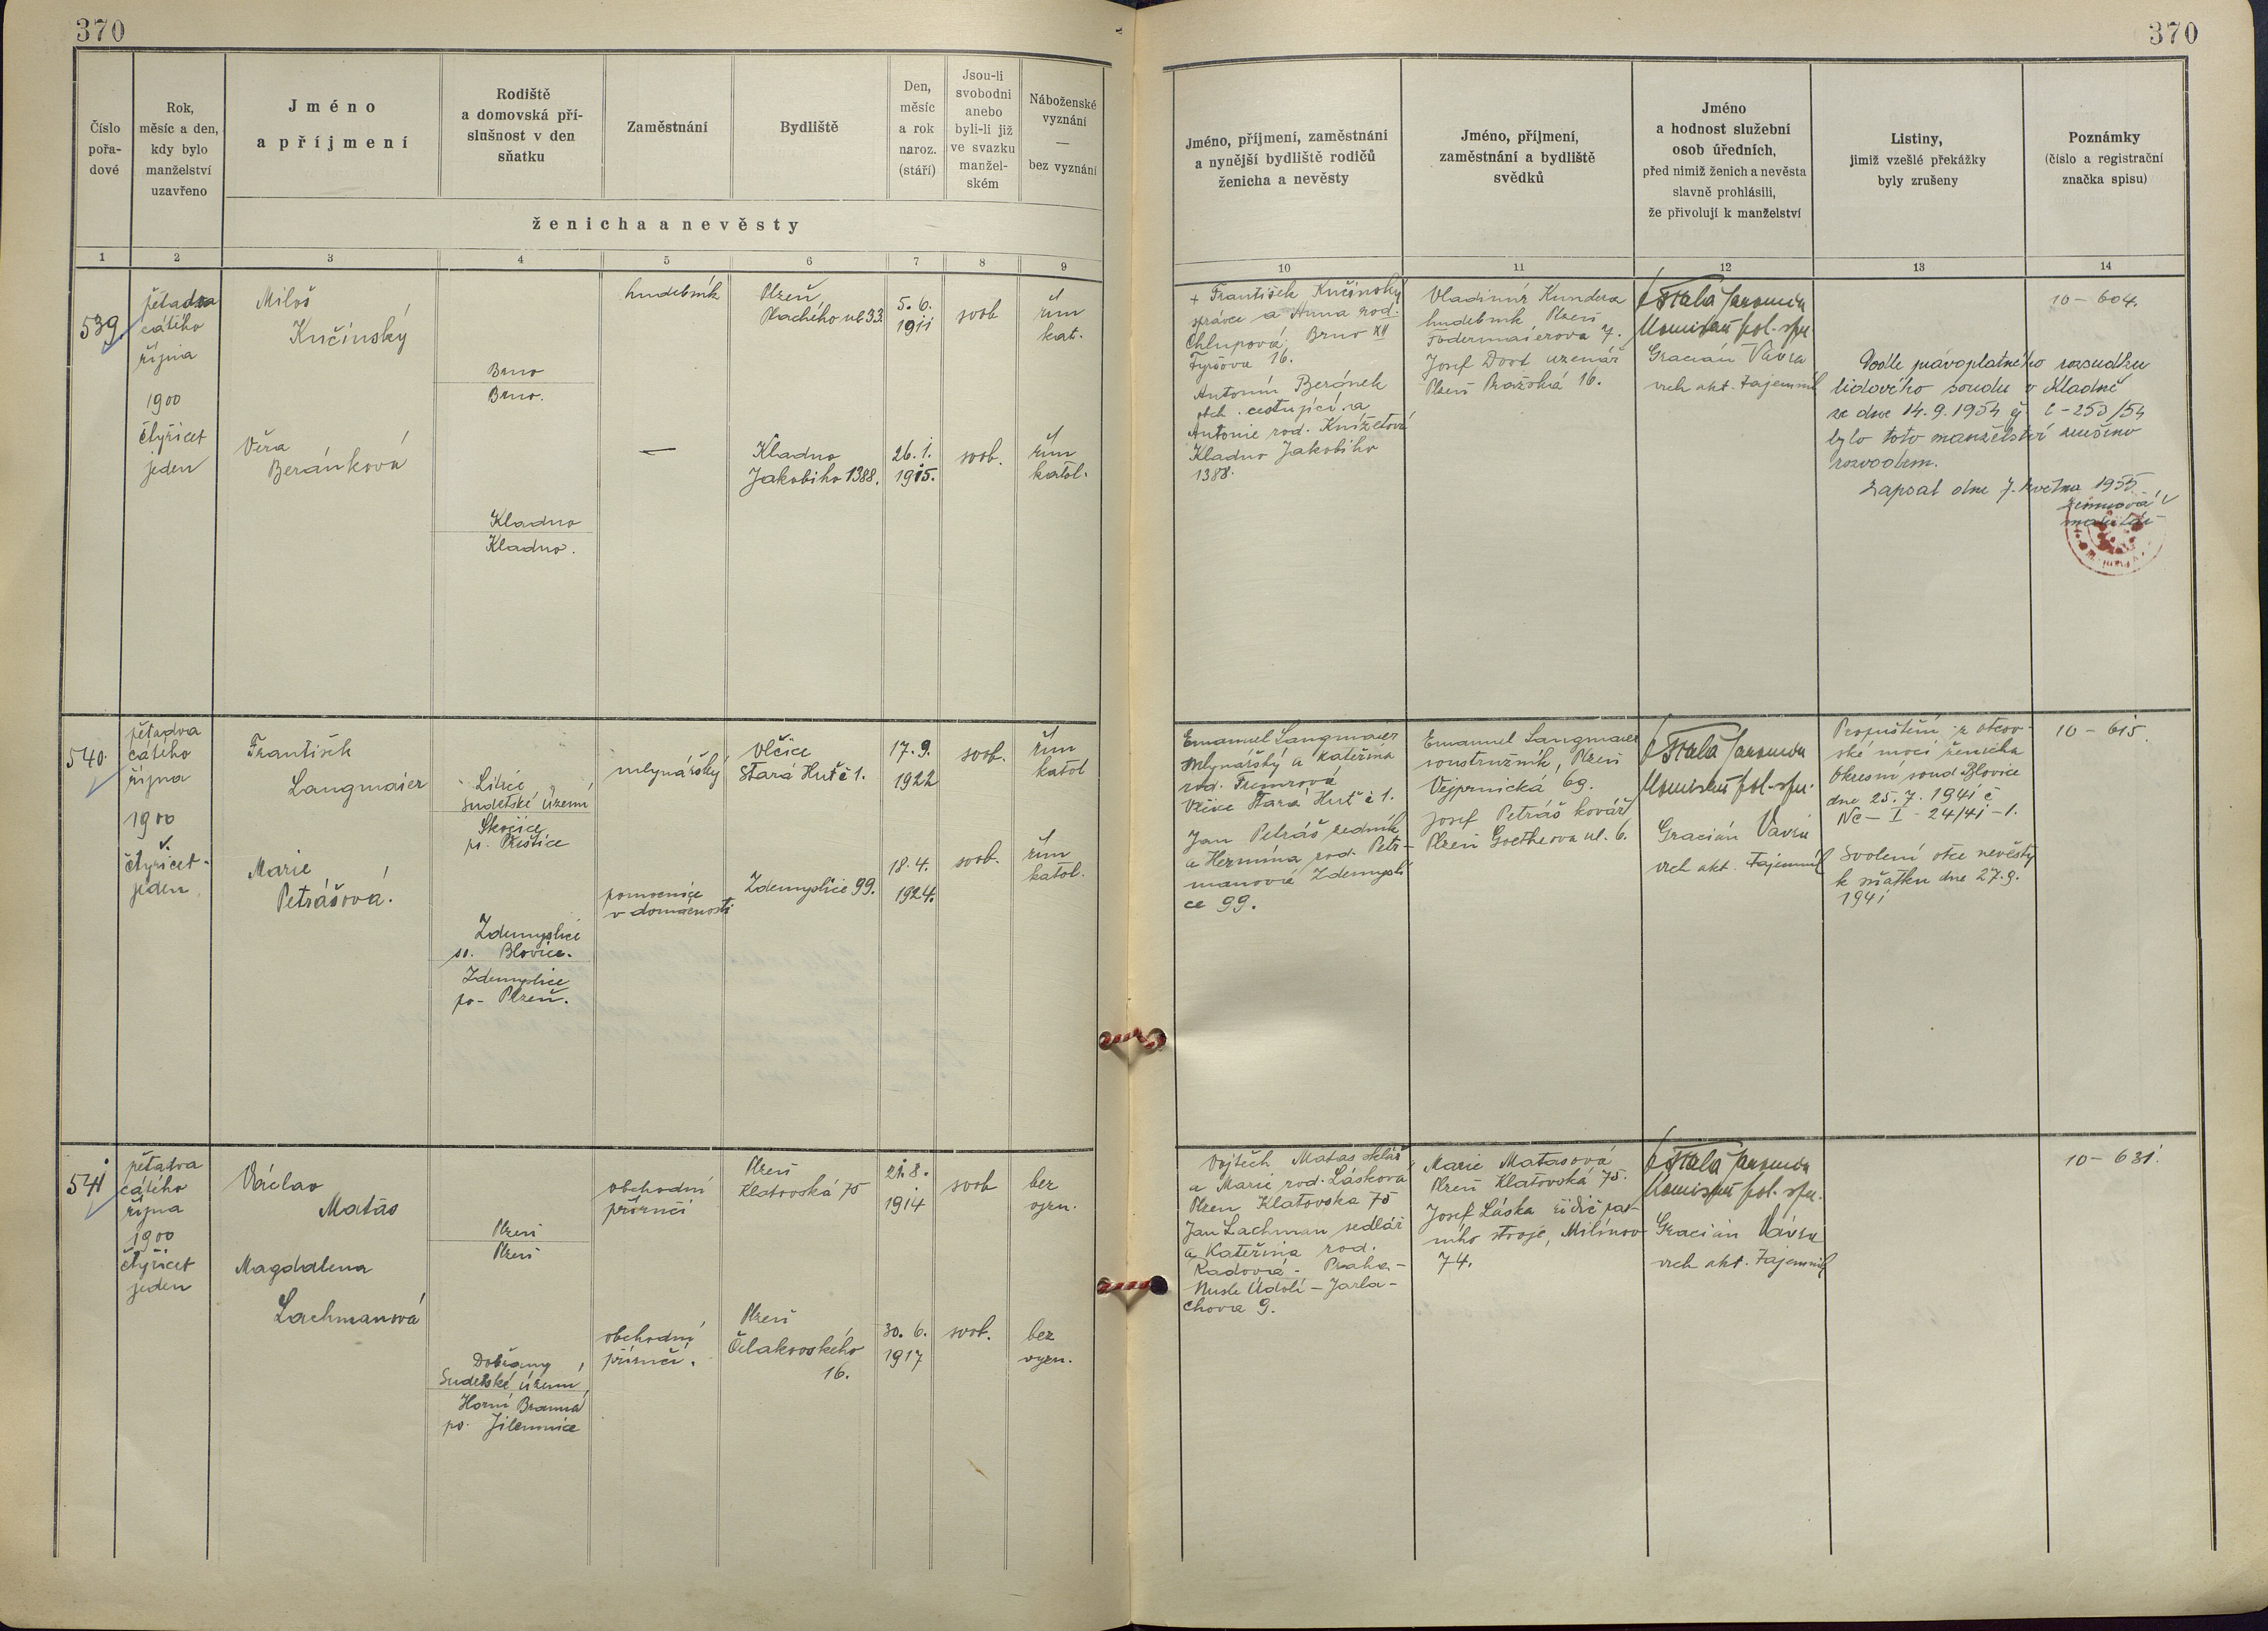 370
370
Číslo
pořa-
dové
Rok,
měsíc a den,
kdy bylo
manželství
uzavřeno
Jméno
a příjmení
Rodiště
a domovská pří-
slušnost v den
sňatku
Zaměstnání
Bydliště
Den,
měsíc
a rok
naroz.
(stáří)
Jsou-li
svobodni
anebo
byli-li již
ve svazku
manžel-
ském
Náboženské
vyznání
—
bez vyznání
ženicha a nevěsty
1 2 3 4 5 6 7 8 9
Jméno, příjmení, zaměstnání
a nynější bydliště rodičů
ženicha a nevěsty
Jméno, příjmení,
zaměstnání a bydliště
svědků
Jméno
a hodnost služební
osob úředních,
před nimiž ženich a nevěsta
slavně prohlásili,
že přivolují k manželství
Listiny,
jimiž vzešlé překážky
byly zrušeny
Poznámky
(číslo a registrační
značka spisu)
10 11 12 13 14
539
pětadva
cátého
října
1900
čtyřicet
jeden
Miloš
Kučínský
Brno
Brno.
hudebník
Plzeň
Plachého ul. 33.
5. 6.
1911
svob
řím
kat.
Věra
Beránková
Kladno
Kladno.
—
Kladno
Jakobiho 1388.
26. 1.
1915.
svob.
řím
katol.
+ František Kučínský
správce a Anna rod.
Chlupová, Brno XII
Tyršova 16.
Antonín Beránek
obch. cestující a
Antonie rod. Knížetová
Kladno Jakobiho
1388.
Vladimír Kundera
hudebník Plzeň
Fodermaierova 7.
Josef Dort uzenář
Plzeň Pražská 16.
Gracián Vávra
vrch. akt. tajemník
Podle právoplatného rozsudku
lidového soudu v Kladně
ze dne 14. 9. 1954 čj C-253/54
bylo toto manželství zrušeno
rozvodem.
Zapsal dne 7. května 1955
10 - 604.
540.
pětadva
cátého
října
1900
čtyřicet-
jeden
František
Langmaier
Litice,
Sudetské území
Skočice
po. Přeštice
mlynářský
Vlčice
Stará Huť č 1.
17. 9.
1922
svob.
řím
katol
Marie
Petrášová.
Zdemyslice
so. Blovice.
Zdemyslice
po- Plzeň.
pomocnice
v domácnosti
Zdemyslice 99.
18. 4.
1924.
svob.
řím
katol.
Emanuel Langmaier
mlynářský a Kateřina
rod. Tremrová
Vlčice Stará Huť č 1.
Jan Petráš zedník
a Hermína rod. Petr-
manová Zdemysli
ce 99.
Emanuel Langmaier
soustružník, Plzeň
Vejprnická 69.
Josef Petráš kovář
Plzeň Goetheova ul. 6.
Gracián Vávra
vrch akt. tajemník
Propuštění z otcov-
ské moci ženicha
Okresní soud Blovice
dne 25. 7. 1941 č
Nc - I - 24/41 - 1.
Svolení otce nevěsty
k sňatku dne 27. 9.
1941
10 - 615.
541
pětadva
cátého
října
1900
čtyřicet
jeden
Václav
Matas
Plzeň
Plzeň
obchodní
příručí
Plzeň
Klatovská 75
21. 8.
1914
svob
bez
vyzn.
Magdalena
Lachmanová
Dobřany,
Sudetské území,
Horní Branná
po. Jilemnice
obchodní
příručí.
Plzeň
Čelakovského
16.
30. 6.
1917
svob.
bez
vyzn.
Vojtěch Matas sklář
a Marie rod. Lásková
Plzeň Klatovská 75
Jan Lachman sedlář
a Kateřina rod.
Kadová - Praha -
Nusle Údolí - Jarla-
chova 9.
Marie Matasová
Plzeň Klatovská 75.
Josef Láska řidič par-
ního stroje, Milínov
74.
Gracián Vávra
vrch akt. tajemník
10 - 631.